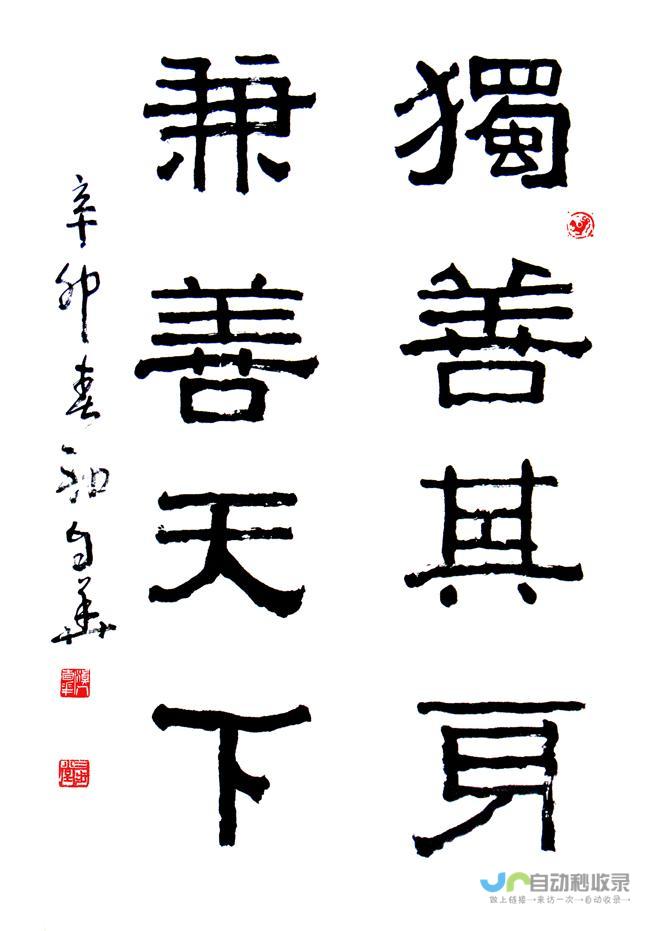 獨善其身
兼善天下
辛卯春
自动秒收录
做上链接→来访一次→自动收录